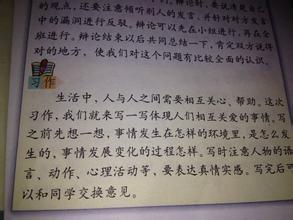 的观点,还要注意倾听别人的发言,并针对对方发言
中的漏洞进行反驳。辩论可以先在小组进行,再在全
班进行。辩论结束以后共同总结一下,肯定双方说得
对的地方,使我们对这个问题有比较全面的认识。
习作
生活中,人与人之间需要相互关心、帮助。这次
习作,我们就来写一写体现人们相互关爱的事情。写
之前先想一想,事情发生在怎样的环境里,是怎么发
生的,事情发展变化的过程怎样。写时注意人物的语
言、动作、心理活动等,要表达真情实感。写完后可
以和同学交换意见。